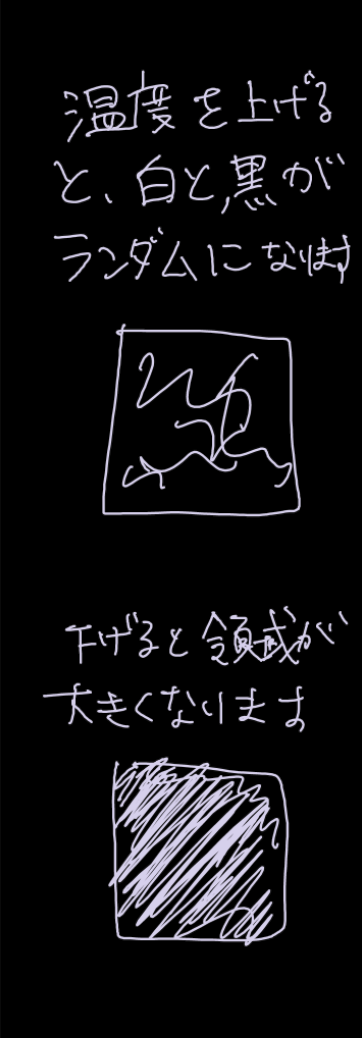 温度を上げる
と、白と黒が
ランダムになります
下げると領域が
大きくなります